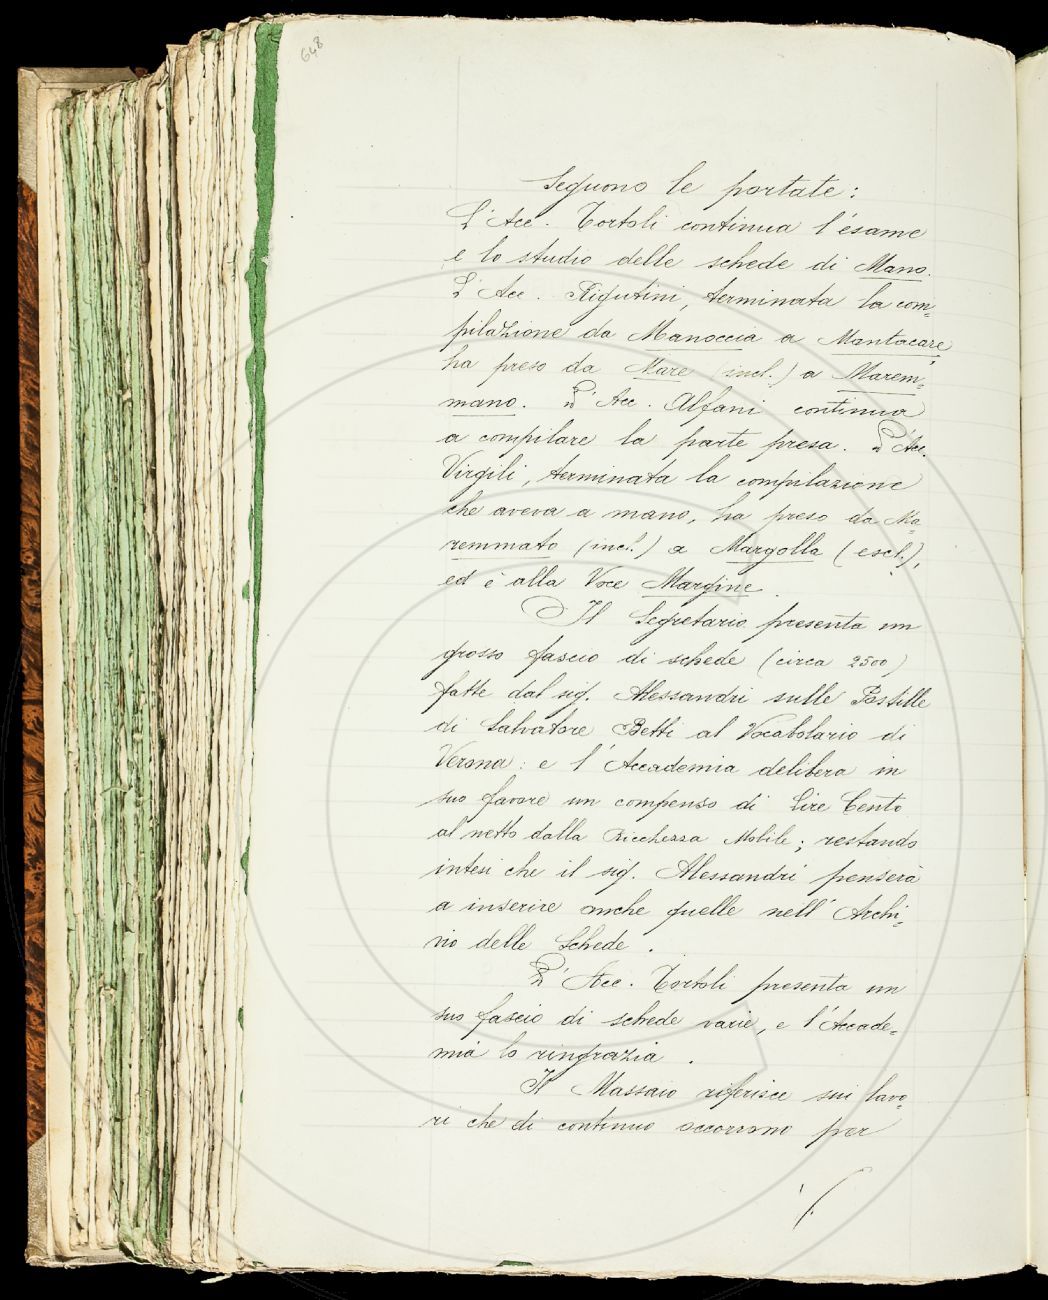 648
Seguono le portate:
L'Acc. Tortoli continua l'esame
e lo studio delle schede di Mano.
L'Acc. Rigutini, terminata la com=
pilazione da Manoccia a Mantacare
ha preso da Mare (incl.) a Marem=
mano. L'Acc. Alfani continua
a compilare la parte presa. L'Acc.
Virgili, terminata la compilazione
che aveva a mano, ha preso da Ma=
remmato (incl.) a Margolla (escl.),
ed è alla Voce Margine.
Il Segretario presenta un
grosso fascio di schede (circa 2500)
fatte dal sig. Alessandri sulle Postille
di Salvatore Betti al Vocabolario di
Verona: e l'Accademia delibera in
suo favore un compenso di Lire Cento
al netto dalla Ricchezza Mobile; restando
intesi che il sig. Alessandri penserà
a inserire anche quelle nell'Archi=
vio delle Schede.
L'Acc. Tortoli presenta un
suo fascio di schede varie, e l'Accade=
mia lo ringrazia.
Il Massaio riferisce sui lavo=
ri che di continuo occorrono per